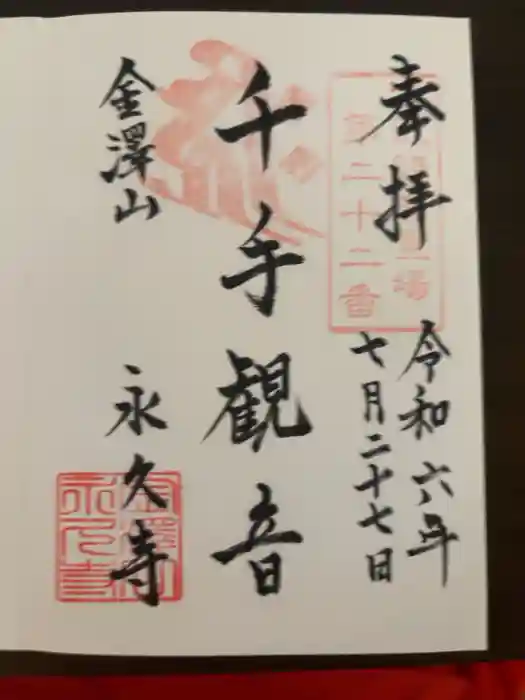 奉拝
令和六年
七月二十七日
第二十二番
千手観音
金澤山
永久寺